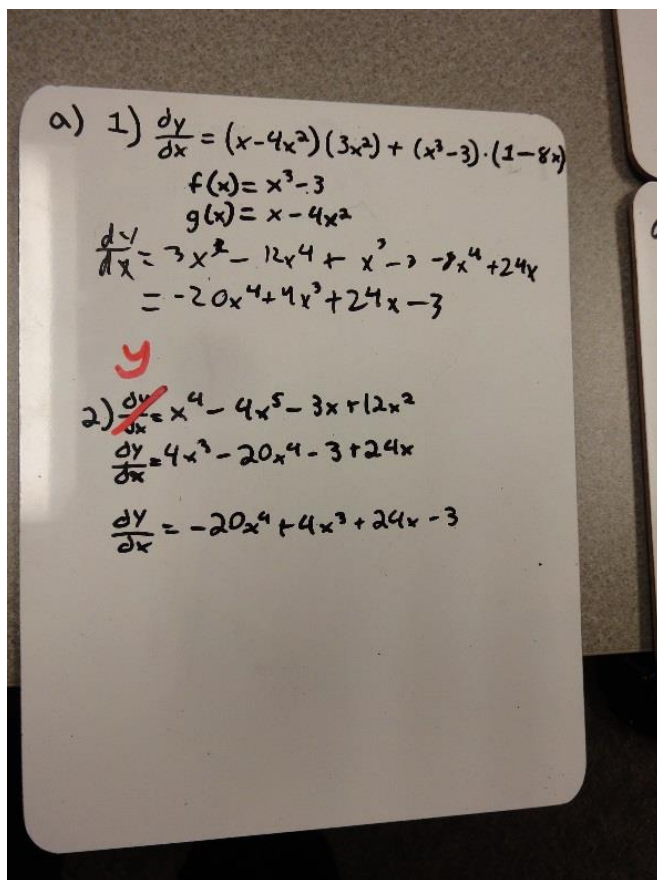 a) 1) dy/dx = (x-4x²)(3x²) + (x³-3)·(1-8x)
f(x)= x³-3
g(x)= x-4x²
dy/dx = 3x³ - 12x⁴ + x³ - 3 - 8x⁴ + 24x
= -20x⁴+4x³+24x-3
y
2) dy/dx = x⁴ - 4x⁵ - 3x + 12x²
dy/dx = 4x³ - 20x⁴ - 3 + 24x
dy/dx = -20x⁴ + 4x³ + 24x - 3